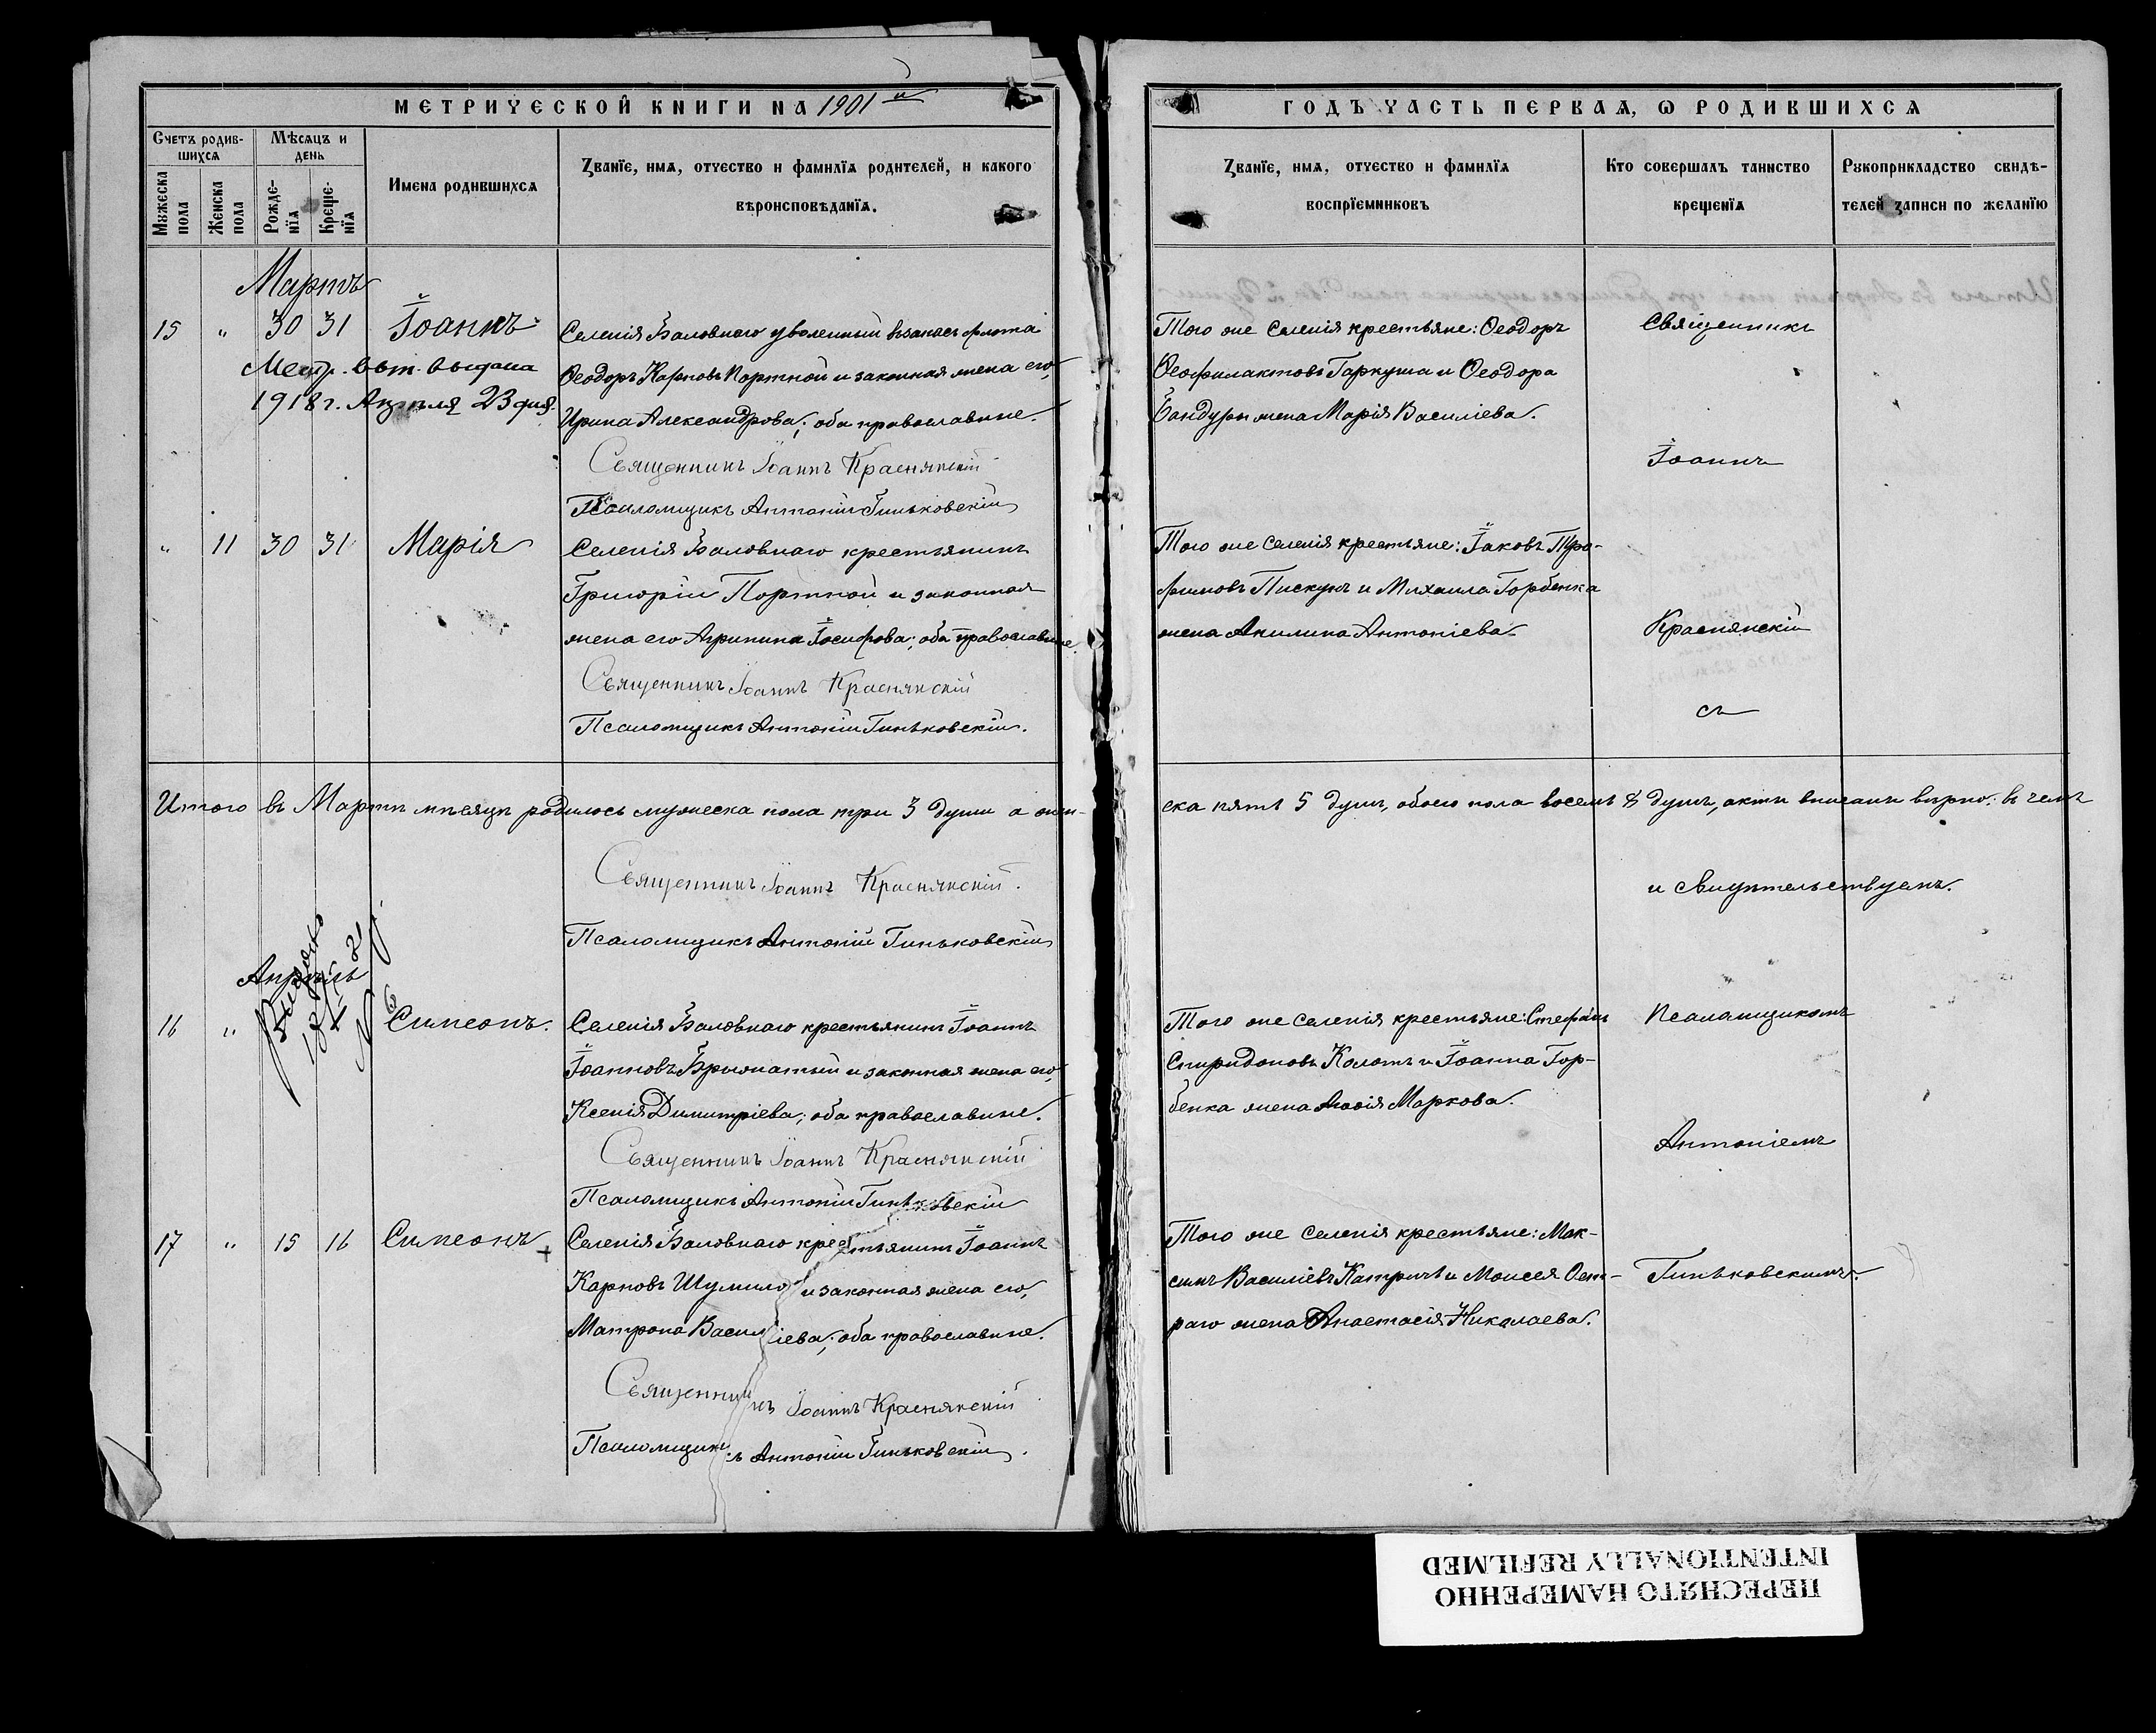 МЕТРИЧЕСКОЙ КНИГИ НА 1901й
Счетъ родив-
шихся
Мѣсяцъ и
день
Мужеска
пола
Женска
пола
Рожде-
нїя
Креще-
нїя
Имена родившихся
Званїе, имя, отчество и фамилїя родителей, и какого
вѣроисповѣданїя.
Мартъ
15 " 30 31 Іоаннъ
Метр. вып. выдана
1918 г. Апреля 23 дня.
Селенія Баловнаго уволенный въ запасъ флота
Ѳеодоръ Карповъ Портной и законная жена его,
Ирина Александрова; оба православные.
Священникъ Іоаннъ Краснянскій
Псаломщикъ Антоній Гиньковскій
" 11 30 31 Марія
Селенія Баловнаго крестьянинъ
Григорій Портной и законная
жена его Агрипина Іосифова; оба православные.
Священникъ Іоаннъ Краснянскій
Псаломщикъ Антоній Гиньковскій.
Итого въ Мартѣ мѣсяцѣ родилось мужеска пола три 3 души а жен-
Священникъ Іоаннъ Краснянскій.
Псаломщикъ Антоній Гиньковскій
Апрѣль
16 " Симеонъ.
Селенія Баловнаго крестьянинъ Іоаннъ
Іоанновъ и законная жена его,
Ксенія Димитріева; оба православные.
Священникъ Іоаннъ Краснянскій
Псаломщикъ Антоній Гиньковскій
17 " 15 16 Симеонъ +
Селенія Баловнаго крестьянинъ Іоаннъ
Карповъ Шумило и законная жена его,
Матрона Василіева; оба православные.
Священникъ Іоаннъ Краснянскій
Псаломщикъ Антоній Гиньковскій.
ГОДЪ ЧАСТЬ ПЕРВАЯ, Ѡ РОДИВШИХСЯ
Званїе, имя, отчество и фамилїя
воспрїемниковъ
Кто совершалъ таинство
крещенїя
Рукоприкладство свидѣ-
телей записи по желанїю
Того же селенія крестьяне: Ѳеодоръ
Ѳеофилактовъ Гаркуша и Ѳеодора
Бандуры жена Марія Василіева.
Священникъ
Іоаннъ
Того же селенія крестьяне: Іаковъ Тро-
фимовъ Пискунъ и Михаила Горбенка
жена Акилина Антоніева.
Краснянскій
съ
ска пять 5 душъ, обоего пола восемь 8 душъ, акты вписаны вѣрно: въ чемъ
и свидѣтельствуемъ.
Того же селенія крестьяне: Стефанъ
Спиридоновъ Колотъ и Іоанна Гор-
бенка жена Агафія Маркова.
Псаломщикомъ
Антоніемъ
Того же селенія крестьяне: Мак-
симъ Василіевъ Катричъ и Моисея Ост-
раго жена Анастасія Николаева.
Гиньковскимъ.
ПЕРЕСНЯТО НАМЕРЕННО
INTENTIONALLY REFILMED